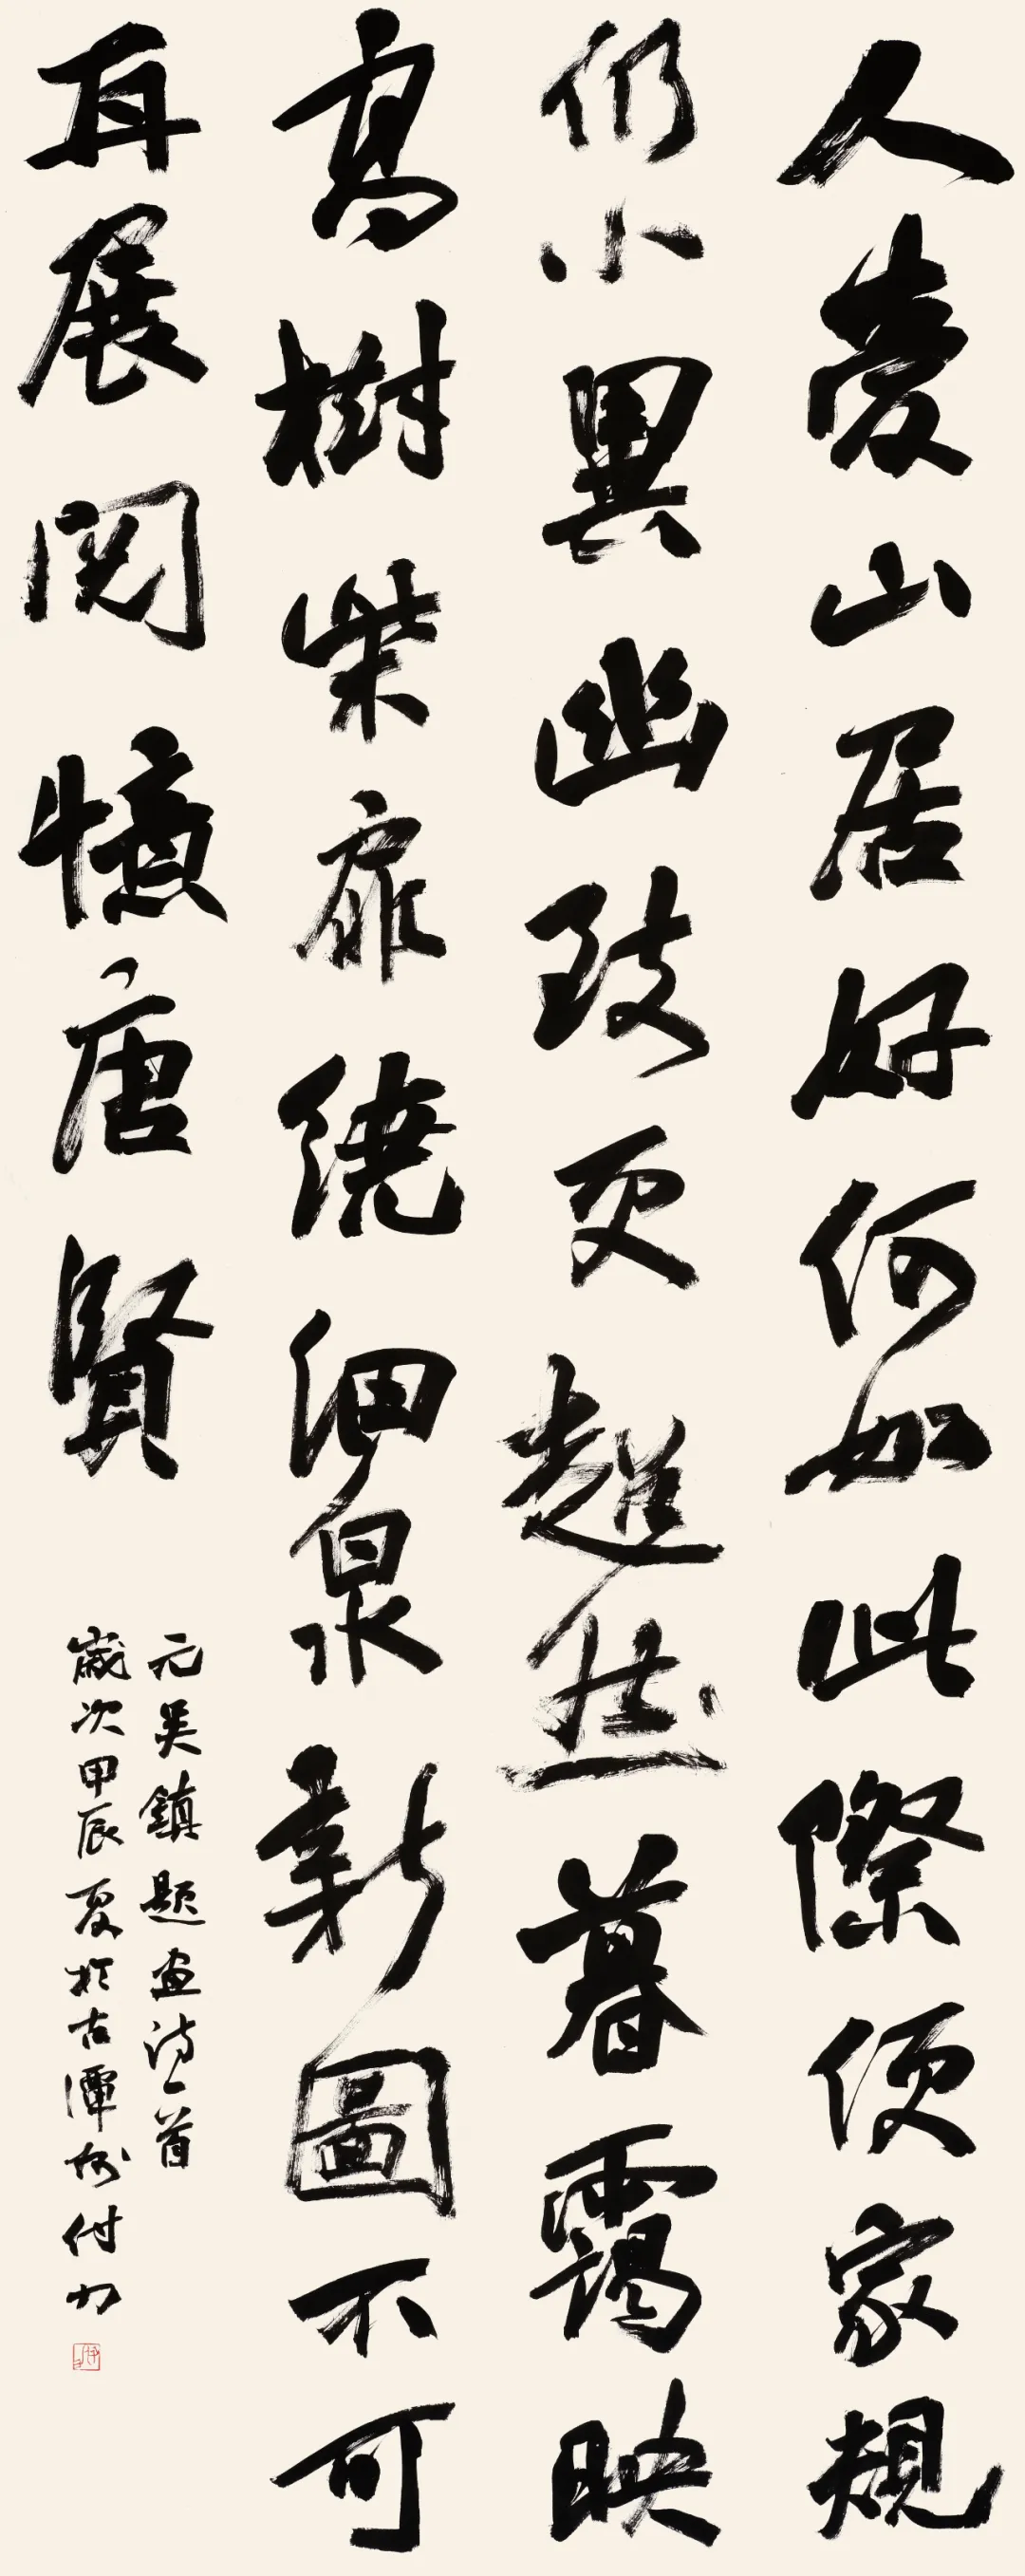 人愛山居好何如此際便家規
仍小異幽致更超然暮靄映
高樹柴扉繞細泉新圖不可
再展閱憶唐賢
元吳鎮題畫詩一首
歲次甲辰夏於古潭州付力